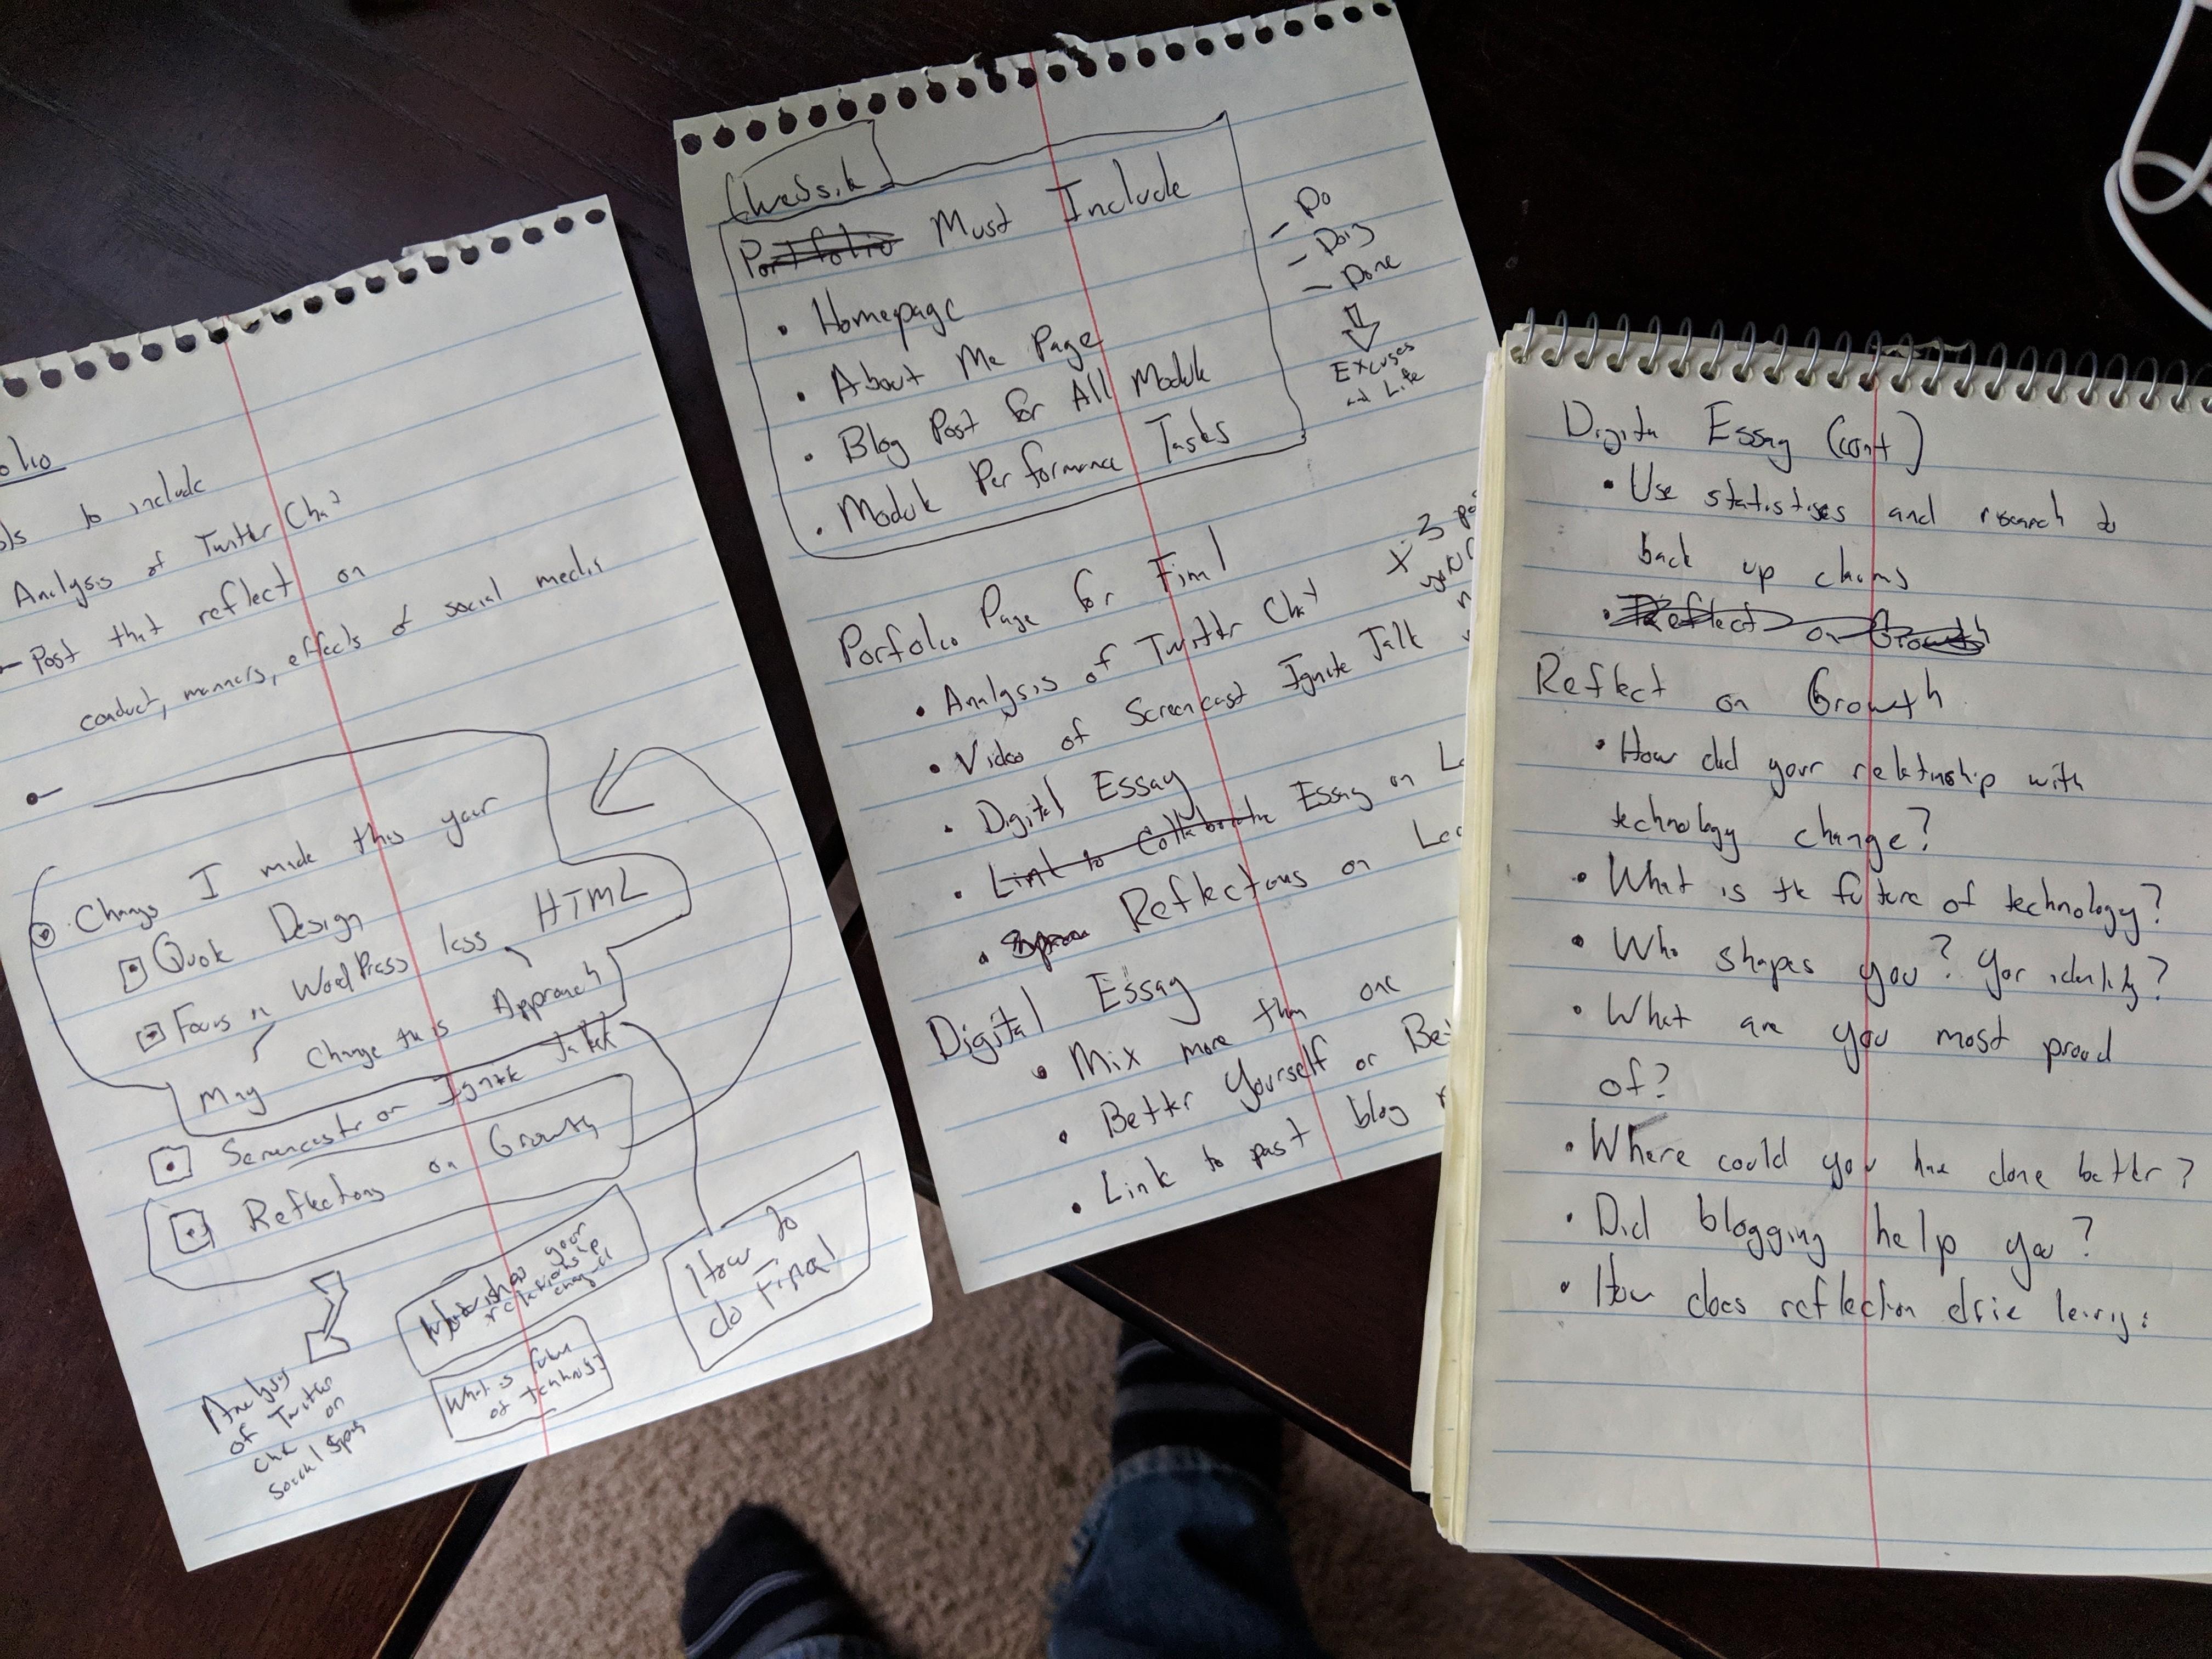 olio
ols to include
Analysis of Twitter Chat
- Post that reflect on
conduct, manners, effects of social media
Changs I made this year
Quote Design
Focus on WordPress less HTML
May Change this Approach
or Ignite Talk
Reflections on Growth
of Twitter
on
your
relationship
What is future
of
How to
do Final
Portfolio Must Include
• Homepage
• About Me Page
• Blog Post for All Module
• Module Performance Tasks
- Do
- Doig
- Done
Excuses
and Life
Porfolio Page for Final
• Analysis of Twitter Chat
• Video of Screencast Ignite Talk
• Digital Essay
• Link to Collaborative Essay on
• Reflections on
Digital Essay
• Mix more than one
• Better Yourself or
• Link to past blog
x 3
Digital Essay (cont)
• Use and research to
back up claims
• Reflect on Growth
Reflect on Growth
• How did your relatinship with
technology change?
• What is the future of technology?
• Who shapes you? Yor identity?
• What are you most proud
of?
• Where could you have done better?
• Did blogging help you?
• How does reflection